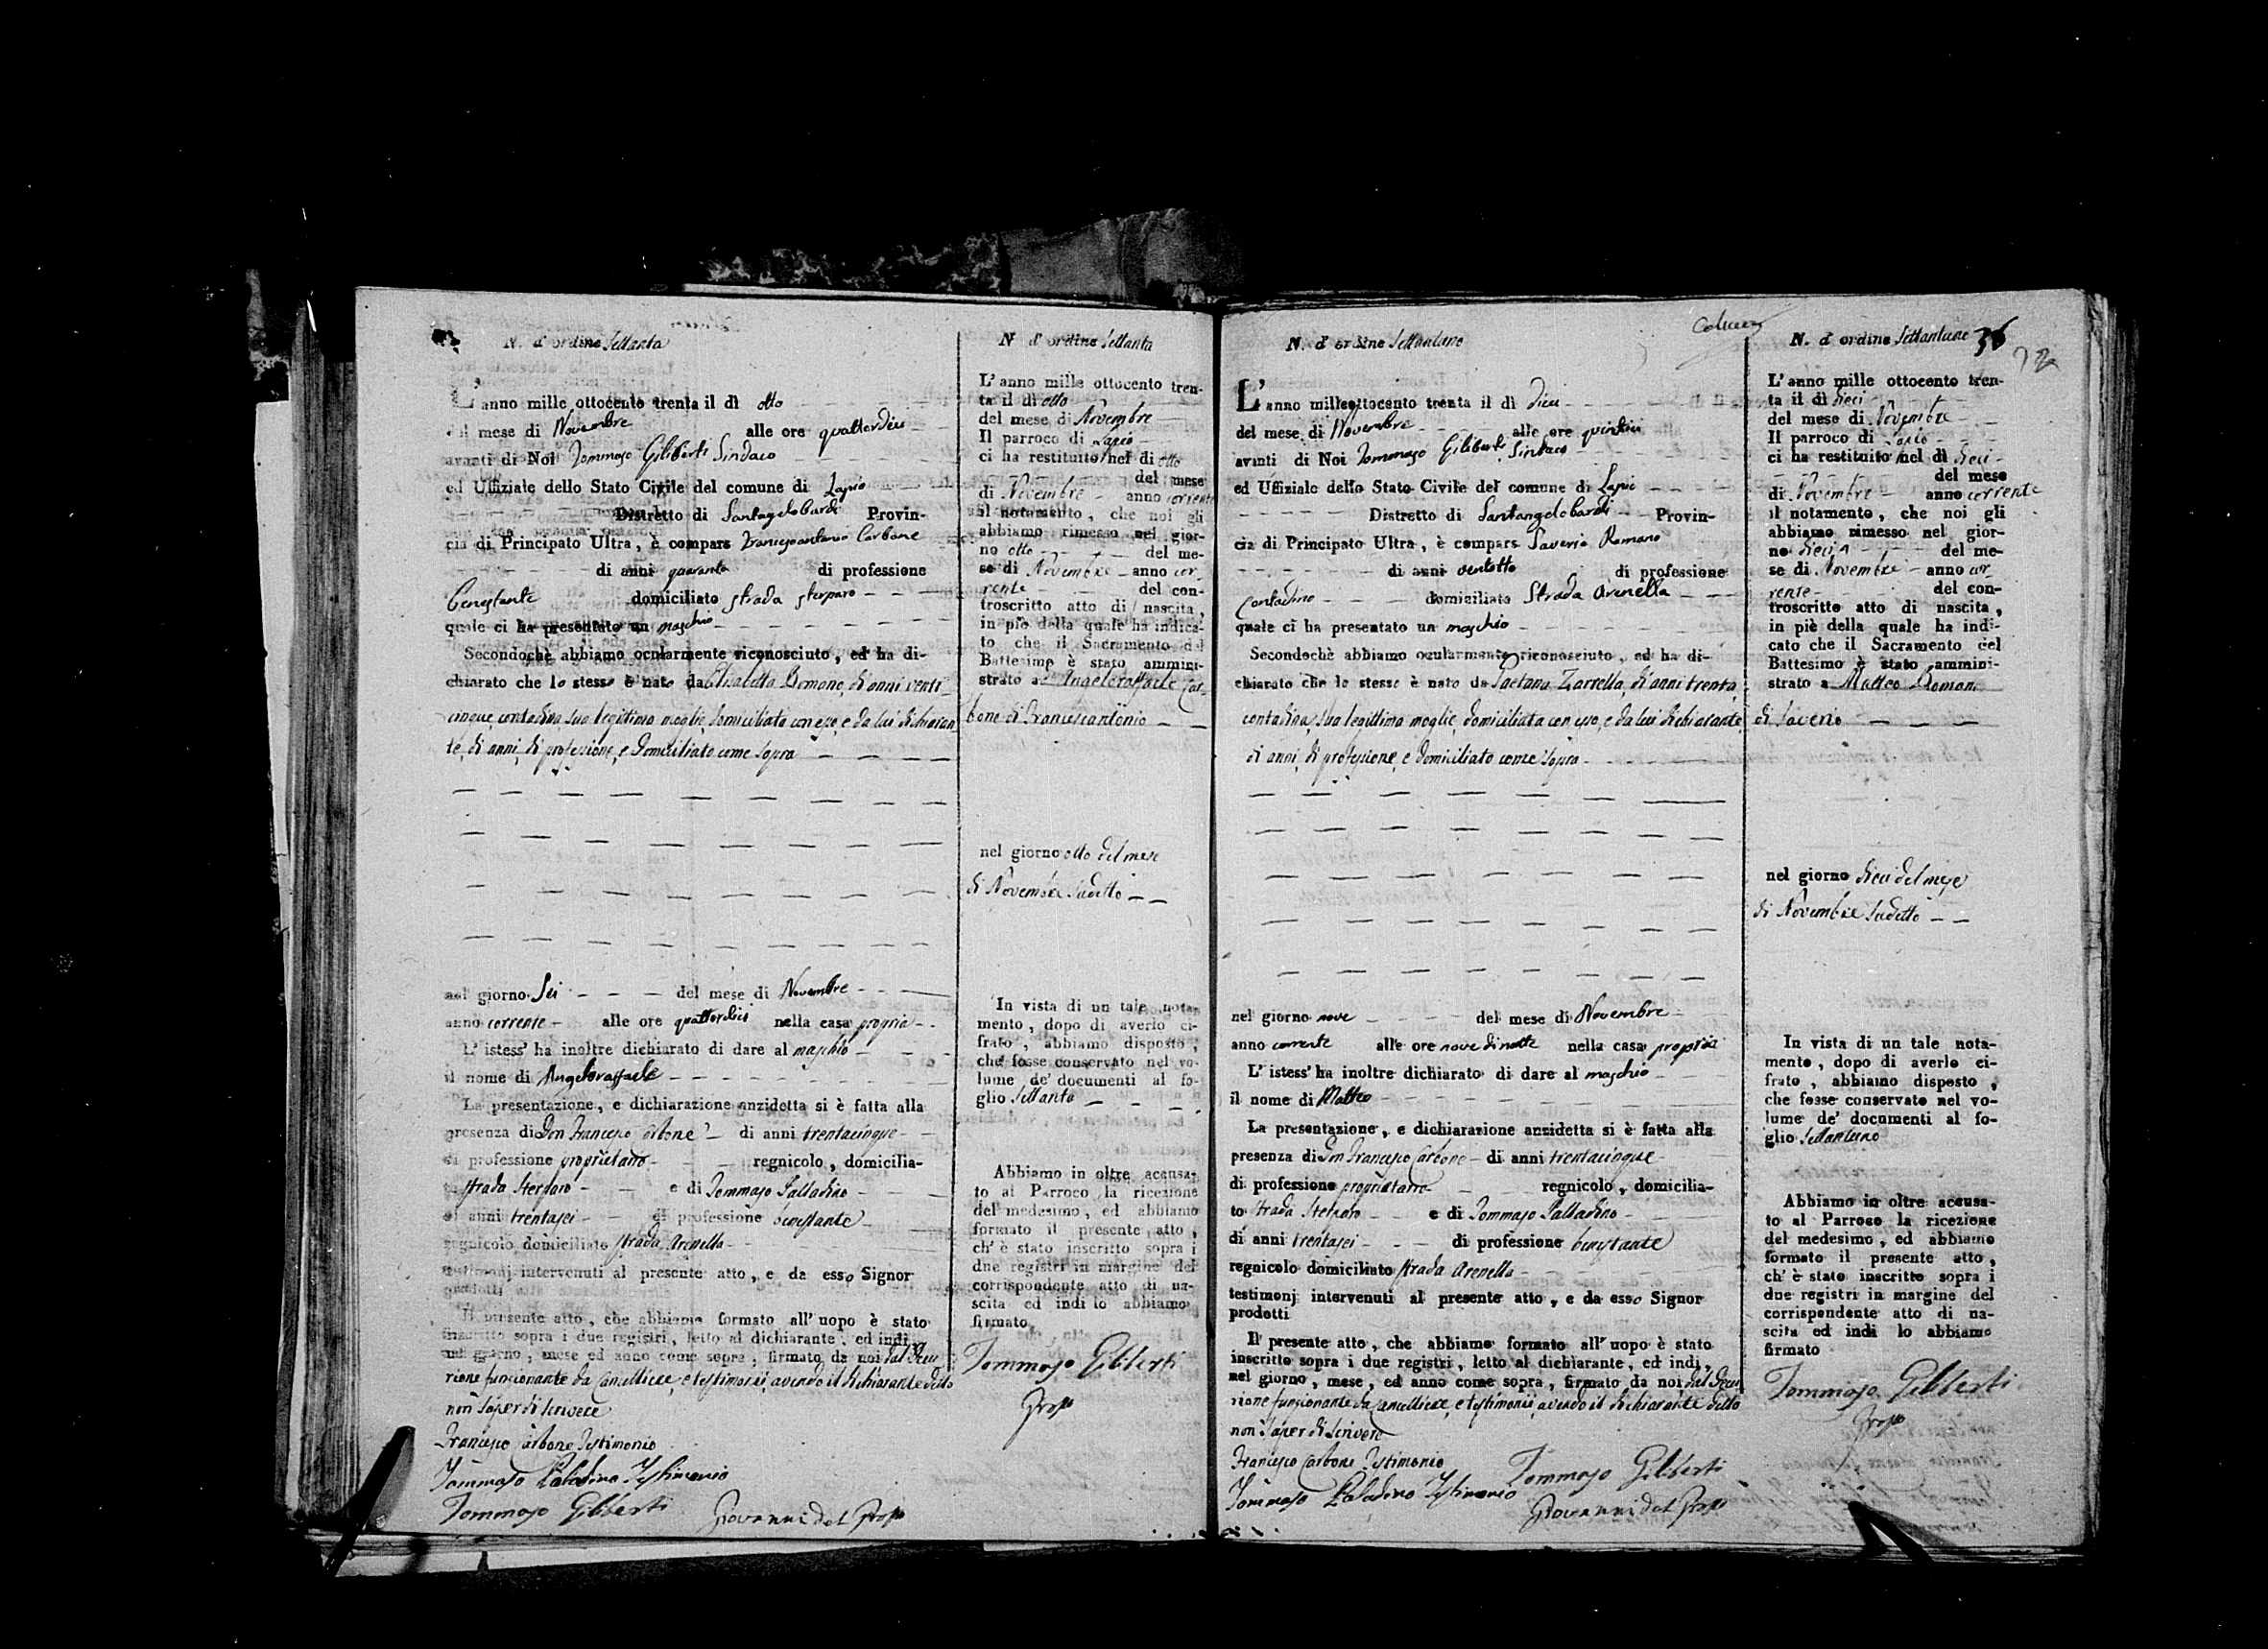 N. d' ordine Settanta
L' anno mille ottocento trenta il dì otto
del mese di Novembre alle ore quattordici
avanti di Noi Tommaso Giliberti Sindaco
ed Uffiziale dello Stato Civile del comune di Lapio
Distretto di Santangelobardi Provin-
cia di Principato Ultra, è comparso Francescantonio Carbone
di anni quaranta di professione
benestante domiciliato strada sterparo
quale ci ha presentato un maschio
Secondochè abbiamo ocularmente riconosciuto, ed ha di-
chiarato che lo stesso è nato da Elisabetta Romano, di anni venti
cinque, contadina, sua legittima moglie, domiciliata con esso, e da lui dichiaran
te, di anni, di professione, e domiciliato come sopra
nel giorno Sei del mese di Novembre
anno corrente alle ore quattordici nella casa propria
L' istess' ha inoltre dichiarato di dare al maschio
il nome di Angeloraffaele
La presentazione, e dichiarazione anzidetta si è fatta alla
presenza di Don Francesco Carbone di anni trentacinque
di professione proprietario regnicolo, domicilia-
to strada Sterparo e di Tommaso Palladino
di anni trentasei di professione benestante
regnicolo domiciliato strada Arenella
testimonj intervenuti al presente atto, e da esso Signor
prodotti
Il presente atto, che abbiamo formato all' uopo è stato
inscritto sopra i due registri, letto al dichiarante, ed indi,
nel giorno, mese ed anno come sopra, firmato da noi dal Decu
rione funzionante da Cancelliere, e testimonii, avendo il dichiarante detto
non saper di scrivere
Francesco Carbone Testimonio
Tommaso Paladino Testimonio
Tommaso Giliberti Giovanni del Grosso
N. d' ordine Settanta
L' anno mille ottocento tren-
ta il dì otto
del mese di Novembre
Il parroco di Lapio
ci ha restituito nel dì otto
del mese
di Novembre anno corrente
il notamento, che noi gli
abbiamo rimesso nel gior-
no otto del me-
se di Novembre anno cor-
rente del con-
troscritto atto di nascita,
in piè della quale ha indica-
to che il Sacramento del
Battesimo è stato ammini-
strato a Angeloraffaele Car-
bone di Francescantonio
nel giorno otto del mese
di Novembre sudetto
In vista di un tale nota-
mento, dopo di averlo ci-
frato, abbiamo disposto,
che fosse conservato nel vo-
lume de' documenti al fo-
glio Settanta
Abbiamo in oltre accusa-
to al Parroco la ricezione
del medesimo, ed abbiamo
formato il presente atto,
ch' è stato inscritto sopra i
due registri in margine del
corrispondente atto di na-
scita ed indi lo abbiamo
firmato
Tommaso Giliberti
Grosso
N. d' ordine Settantuno
L' anno milleottocento trenta il dì dieci
del mese di Novembre alle ore quindici
avanti di Noi Tommaso Giliberti Sindaco
ed Uffiziale dello Stato Civile del comune di Lapio
Distretto di Santangelobardi Provin-
cia di Principato Ultra, è comparso Saverio Romano
di anni ventotto di professione
Contadino domiciliato Strada Arenella
quale ci ha presentato un maschio
Secondochè abbiamo ocularmente riconosciuto, ed ha di-
chiarato che lo stesso è nato da Gaetana Zarrella, di anni trenta
contadina, sua legittima moglie, domiciliata con esso, e da lui dichiarante,
di anni, di professione, e domiciliato come sopra
nel giorno nove del mese di Novembre
anno corrente alle ore nove di notte nella casa propria
L' istess' ha inoltre dichiarato di dare al maschio
il nome di Matteo
La presentazione, e dichiarazione anzidetta si è fatta alla
presenza di Don Francesco Carbone di anni trentacinque
di professione proprietario regnicolo, domicilia-
to strada Sterparo e di Tommaso Palladino
di anni trentasei di professione benestante
regnicolo domiciliato strada Arenella
testimonj intervenuti al presente atto, e da esso Signor
prodotti
Il presente atto, che abbiamo formato all' uopo è stato
inscritto sopra i due registri, letto al dichiarante, ed indi,
nel giorno, mese, ed anno come sopra, firmato da noi dal Decu
rione funzionante da Cancelliere, e testimonii, avendo il dichiarante detto
non saper di scrivere
Francesco Carbone Testimonio
Tommaso Paladino Testimonio Tommaso Giliberti
Giovanni del Grosso
N. d' ordine Settantuno 36
L' anno mille ottocento tren-
ta il dì dieci
del mese di Novembre
Il parroco di Lapio
ci ha restituito nel dì dieci
del mese
di Novembre anno corrente
il notamento, che noi gli
abbiamo rimesso nel gior-
no dieci del me-
se di Novembre anno cor-
rente del con-
troscritto atto di nascita,
in piè della quale ha indi-
cato che il Sacramento del
Battesimo è stato ammini-
strato a Matteo Romano
di Saverio
nel giorno dieci del mese
di Novembre sudetto
In vista di un tale nota-
mento, dopo di averlo ci-
frato, abbiamo disposto,
che fosse conservato nel vo-
lume de' documenti al fo-
glio Settantuno
Abbiamo in oltre accusa-
to al Parroco la ricezione
del medesimo, ed abbiamo
formato il presente atto,
ch' è stato inscritto sopra i
due registri in margine del
corrispondente atto di na-
scita ed indi lo abbiamo
firmato
Tommaso Giliberti
Grosso